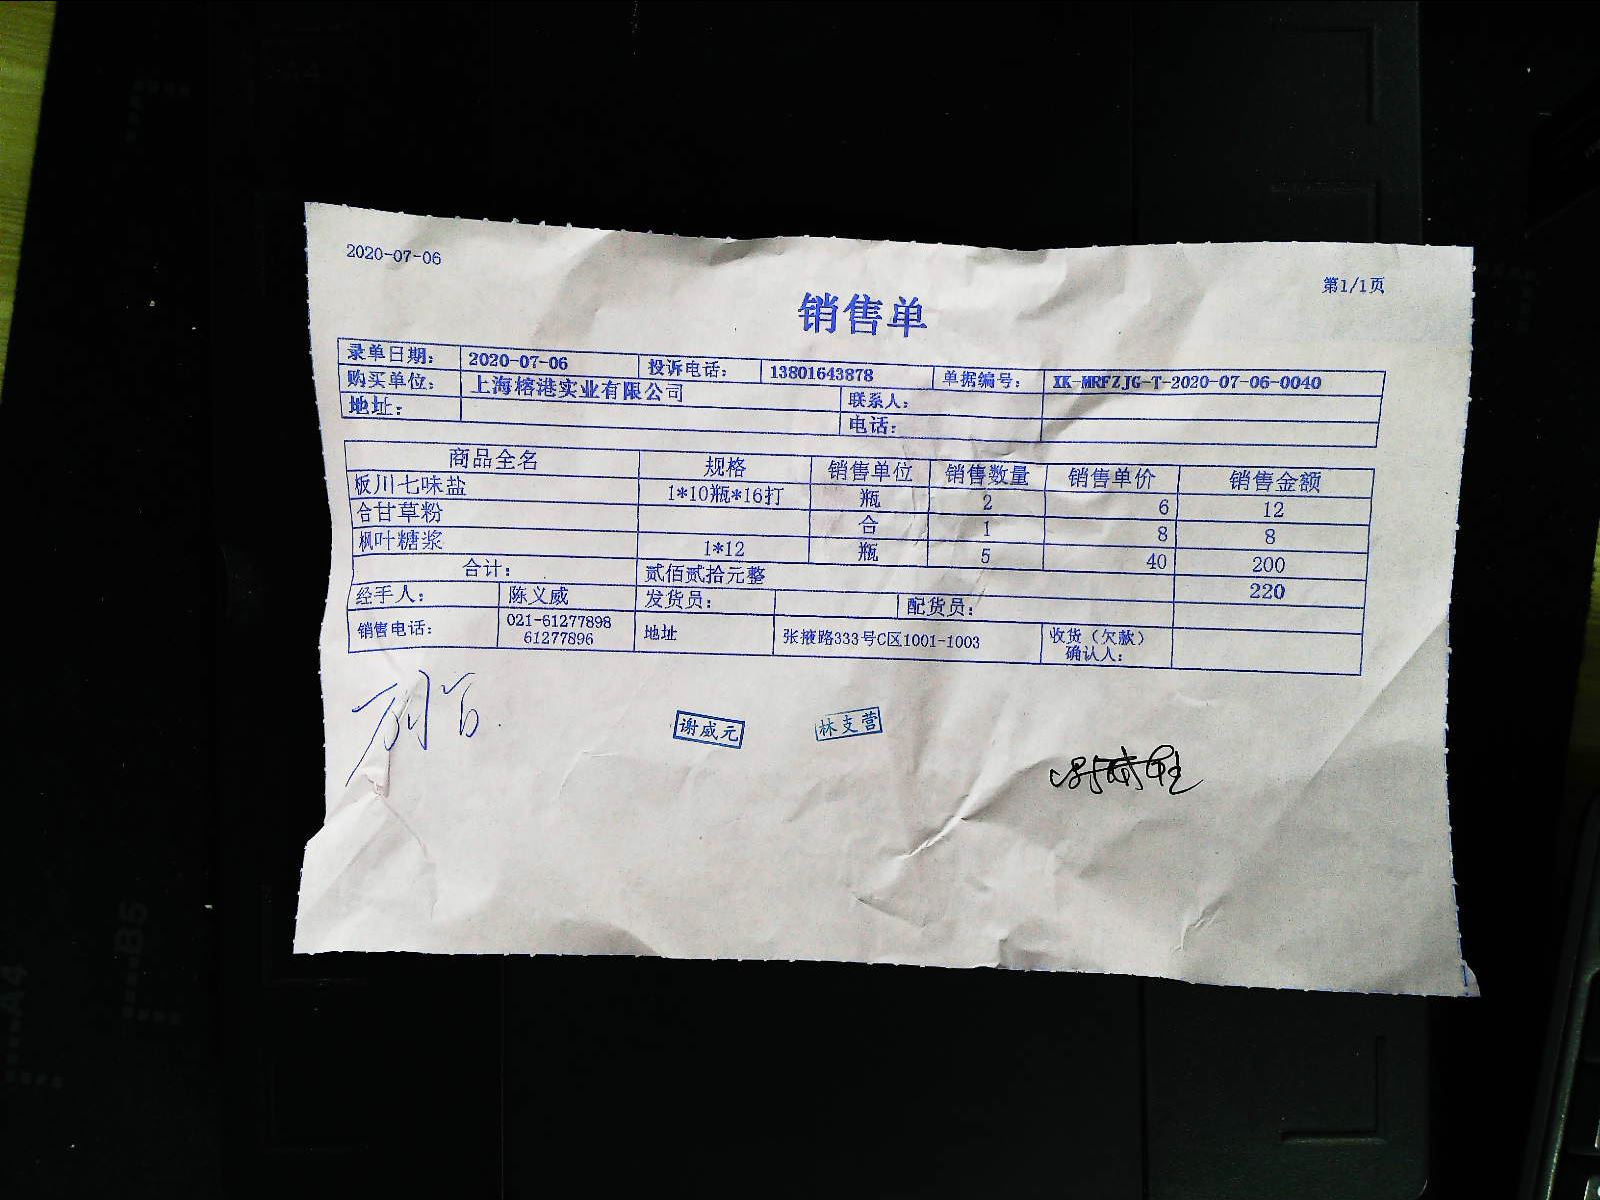 2020-07-06
第1/1页
销售单
录单日期： 2020-07-06 投诉电话： 13801643878 单据编号： XK-MRFZJG-T-2020-07-06-0040
购买单位： 上海榕港实业有限公司 联系人：
地址： 电话：
商品全名 规格 销售单位 销售数量 销售单价 销售金额
板川七味盐 1*10瓶*16打 瓶 2 6 12
合甘草粉 合 1 8 8
枫叶糖浆 1*12 瓶 5 40 200
合计： 贰佰贰拾元整 220
经手人： 陈义威 发货员： 配货员：
销售电话： 021-61277898 61277896 地址 张掖路333号C区1001-1003 收货（欠款）确认人：
谢威元 林支营
A4
B5